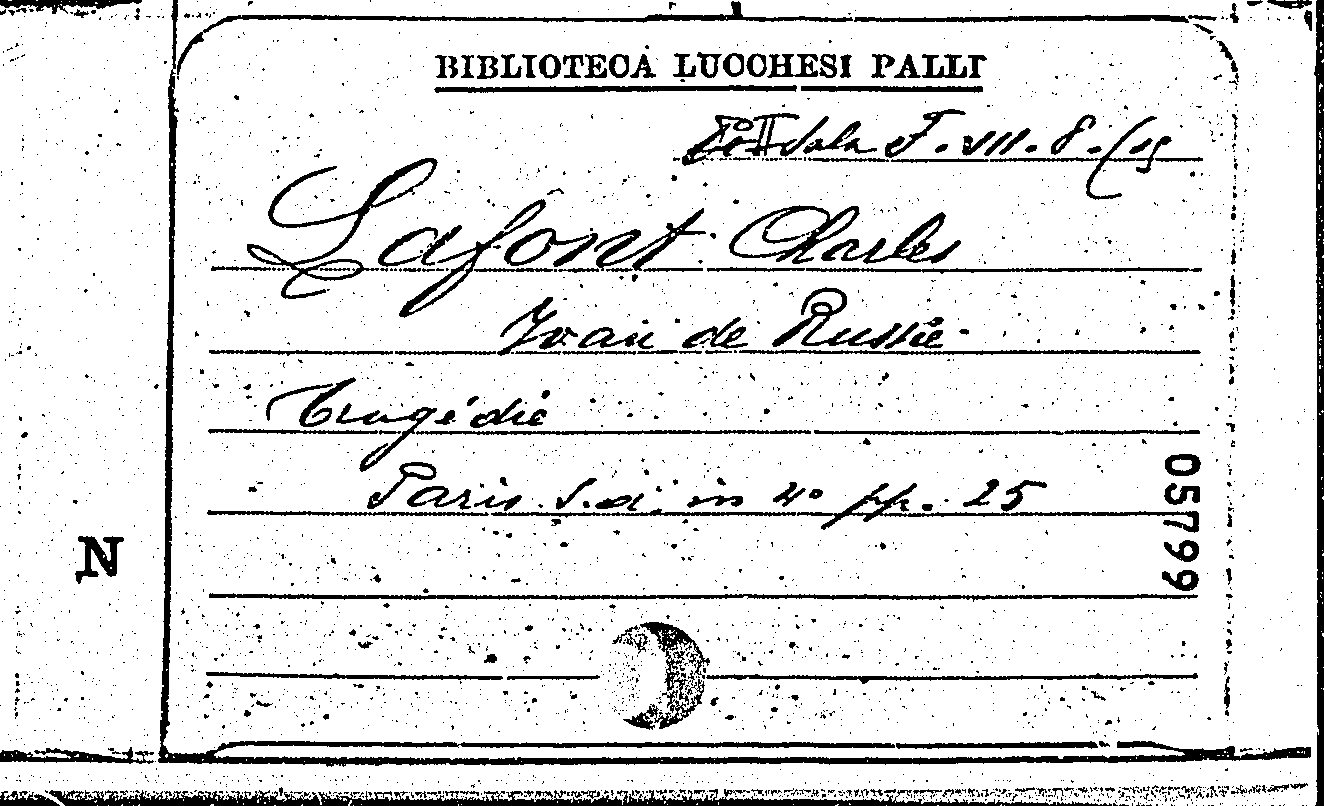 BIBLIOTECA LUCCHESI PALLI
II Sala F. VII. 8. (15
Lafont Charles
Ivan de Russie
Tragédie
Paris s.d. in 4° pp. 25
05799
N